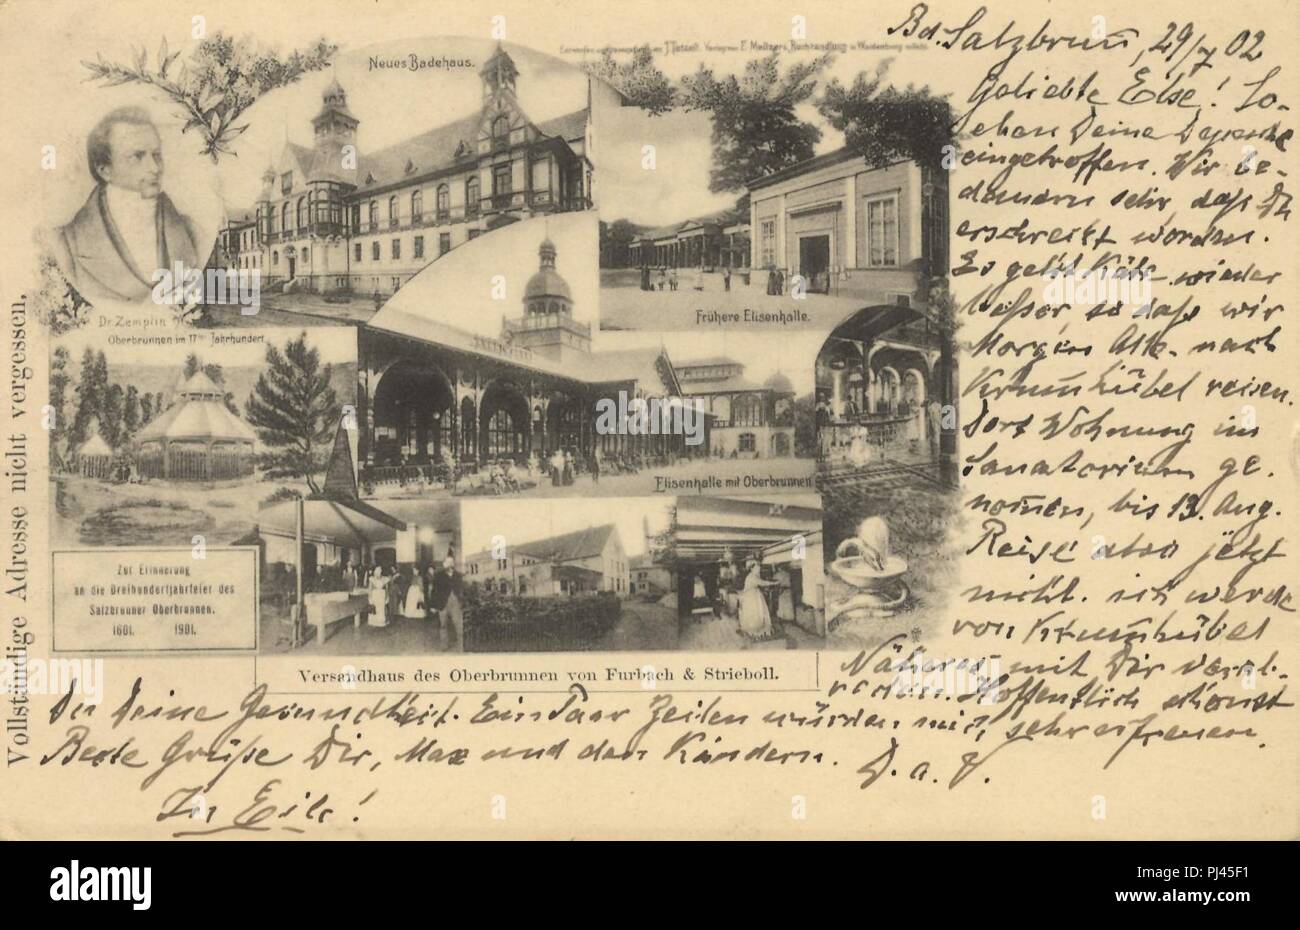 Bd. Salzbrunn, 29/7 02
Geliebte Else! So-
eben Deine Depesche
eingetroffen. Wir be-
dauern sehr daß Du
erschreckt worden.
Es geht Käte wieder
besser so daß wir
Morgen Alle nach
Krummhübel reisen.
Dort Wohnung im
Sanatorium ge-
nommen, bis 13. Aug.
Reise also jetzt
nicht. ich werde
von Krummhübel
Näheres mit Dir verab-
reden. Hoffentlich schonst
Du Deine Gesundheit. Ein Paar Zeilen würden mich sehr erfreuen.
Beste Grüße Dir, Max und den Kindern.
D. a. J.
In Eile!
Neues Badehaus.
J. Tatzelt. Verlag von E. Meltzer's Buchhandlung in Waldenburg
Dr. Zemplin
Frühere Elisenhalle.
Oberbrunnen im 17ten Jahrhundert.
Elisenhalle mit Oberbrunnen
Zur Erinnerung
an die Dreihundertjahrfeier des
Salzbrunner Oberbrunnen.
1601. 1901.
Versandhaus des Oberbrunnen von Furbach & Strieboll.
Vollständige Adresse nicht vergessen.
alamy
a
a
a
a
alamy
Image ID: PJ45F1
www.alamy.com